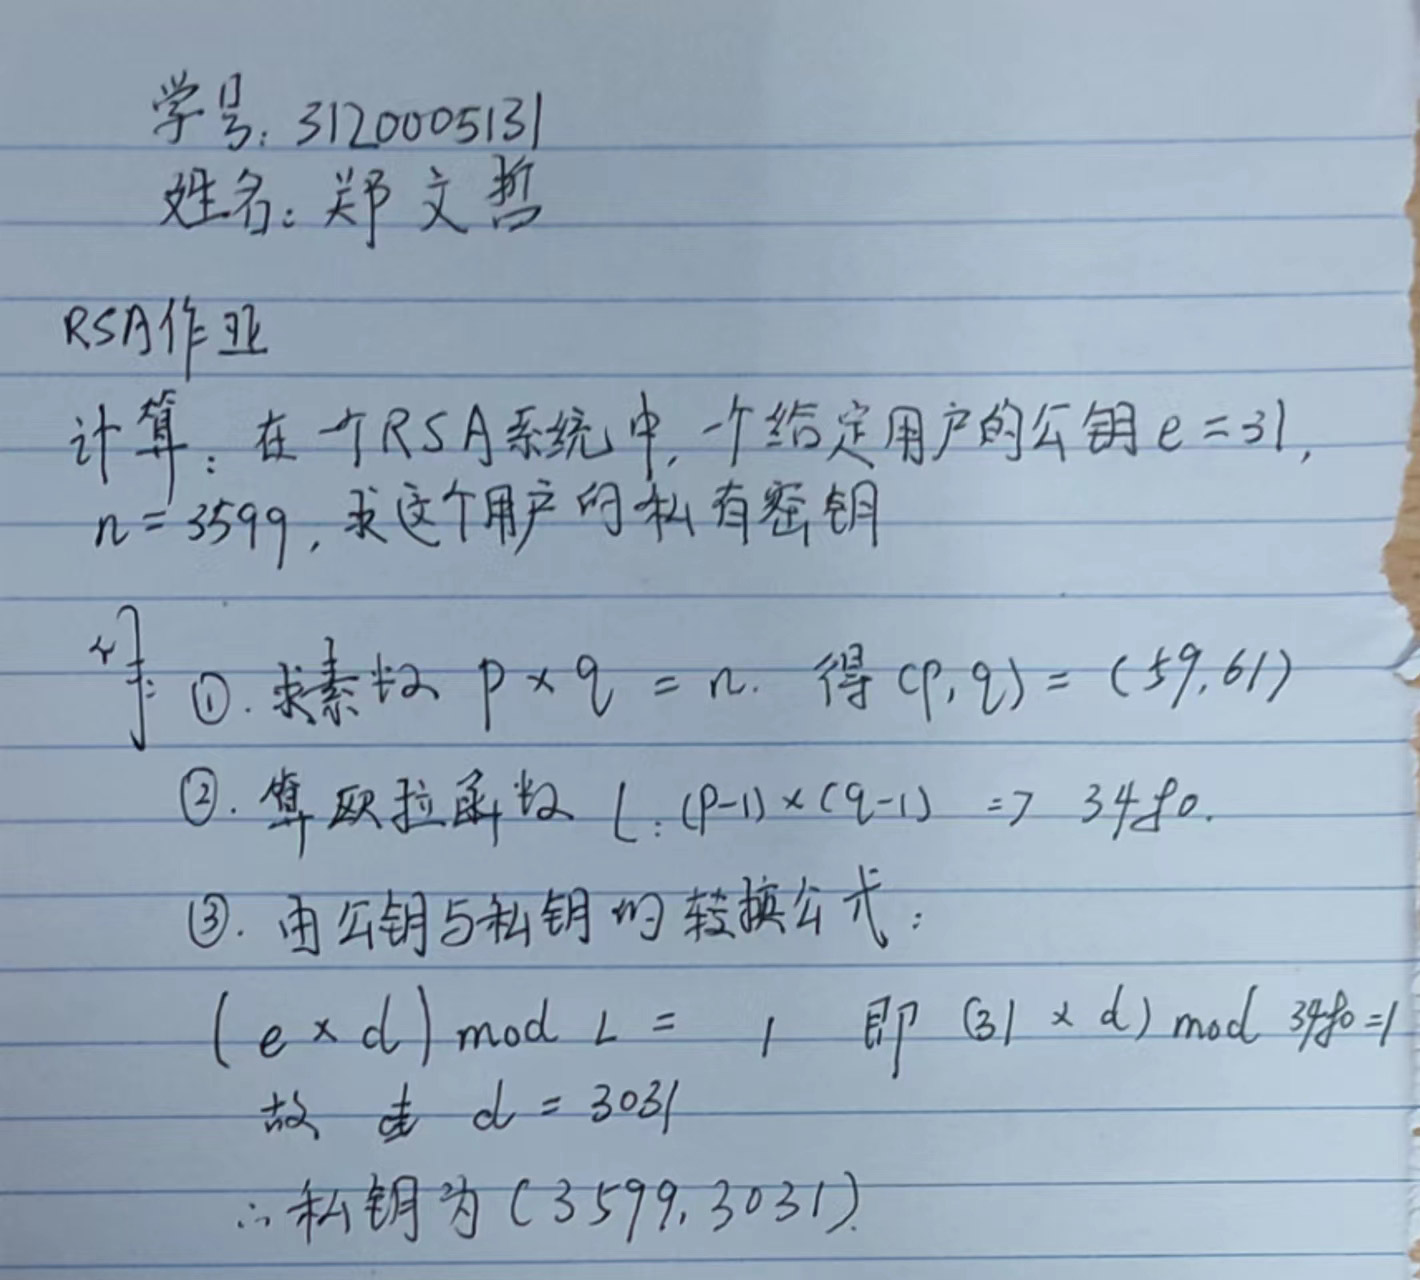 学号: 3120005131
姓名: 郑文哲
RSA作业
计算: 在一个RSA系统中, 一个给定用户的公钥e=31,
n=3599, 求这个用户的私有密钥
解:
①. 求素数 p×q = n. 得(p,q) = (59,61)
②. 算欧拉函数 L: (p-1)×(q-1) => 3480.
③. 由公钥与私钥的转换公式:
(e×d) mod L = 1 即 (31×d) mod 3480=1
故 d = 3031
∴私钥为(3599,3031).